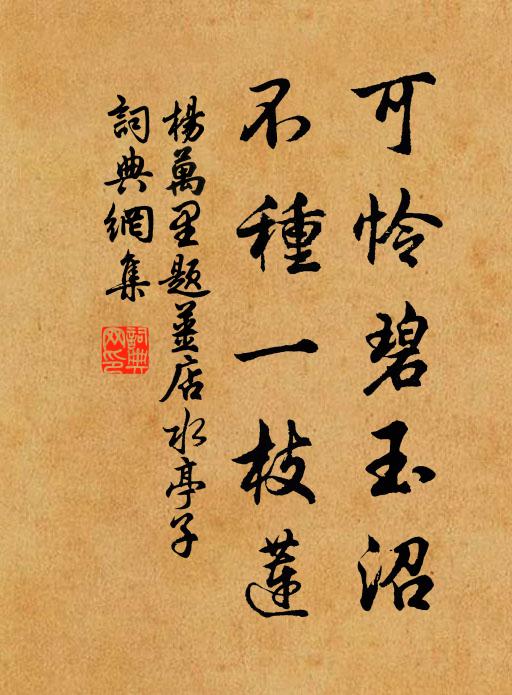 可怜碧玉沼
不種一枝蓮
楊萬里題薑店水亭子
詞典網集
詞典
网印